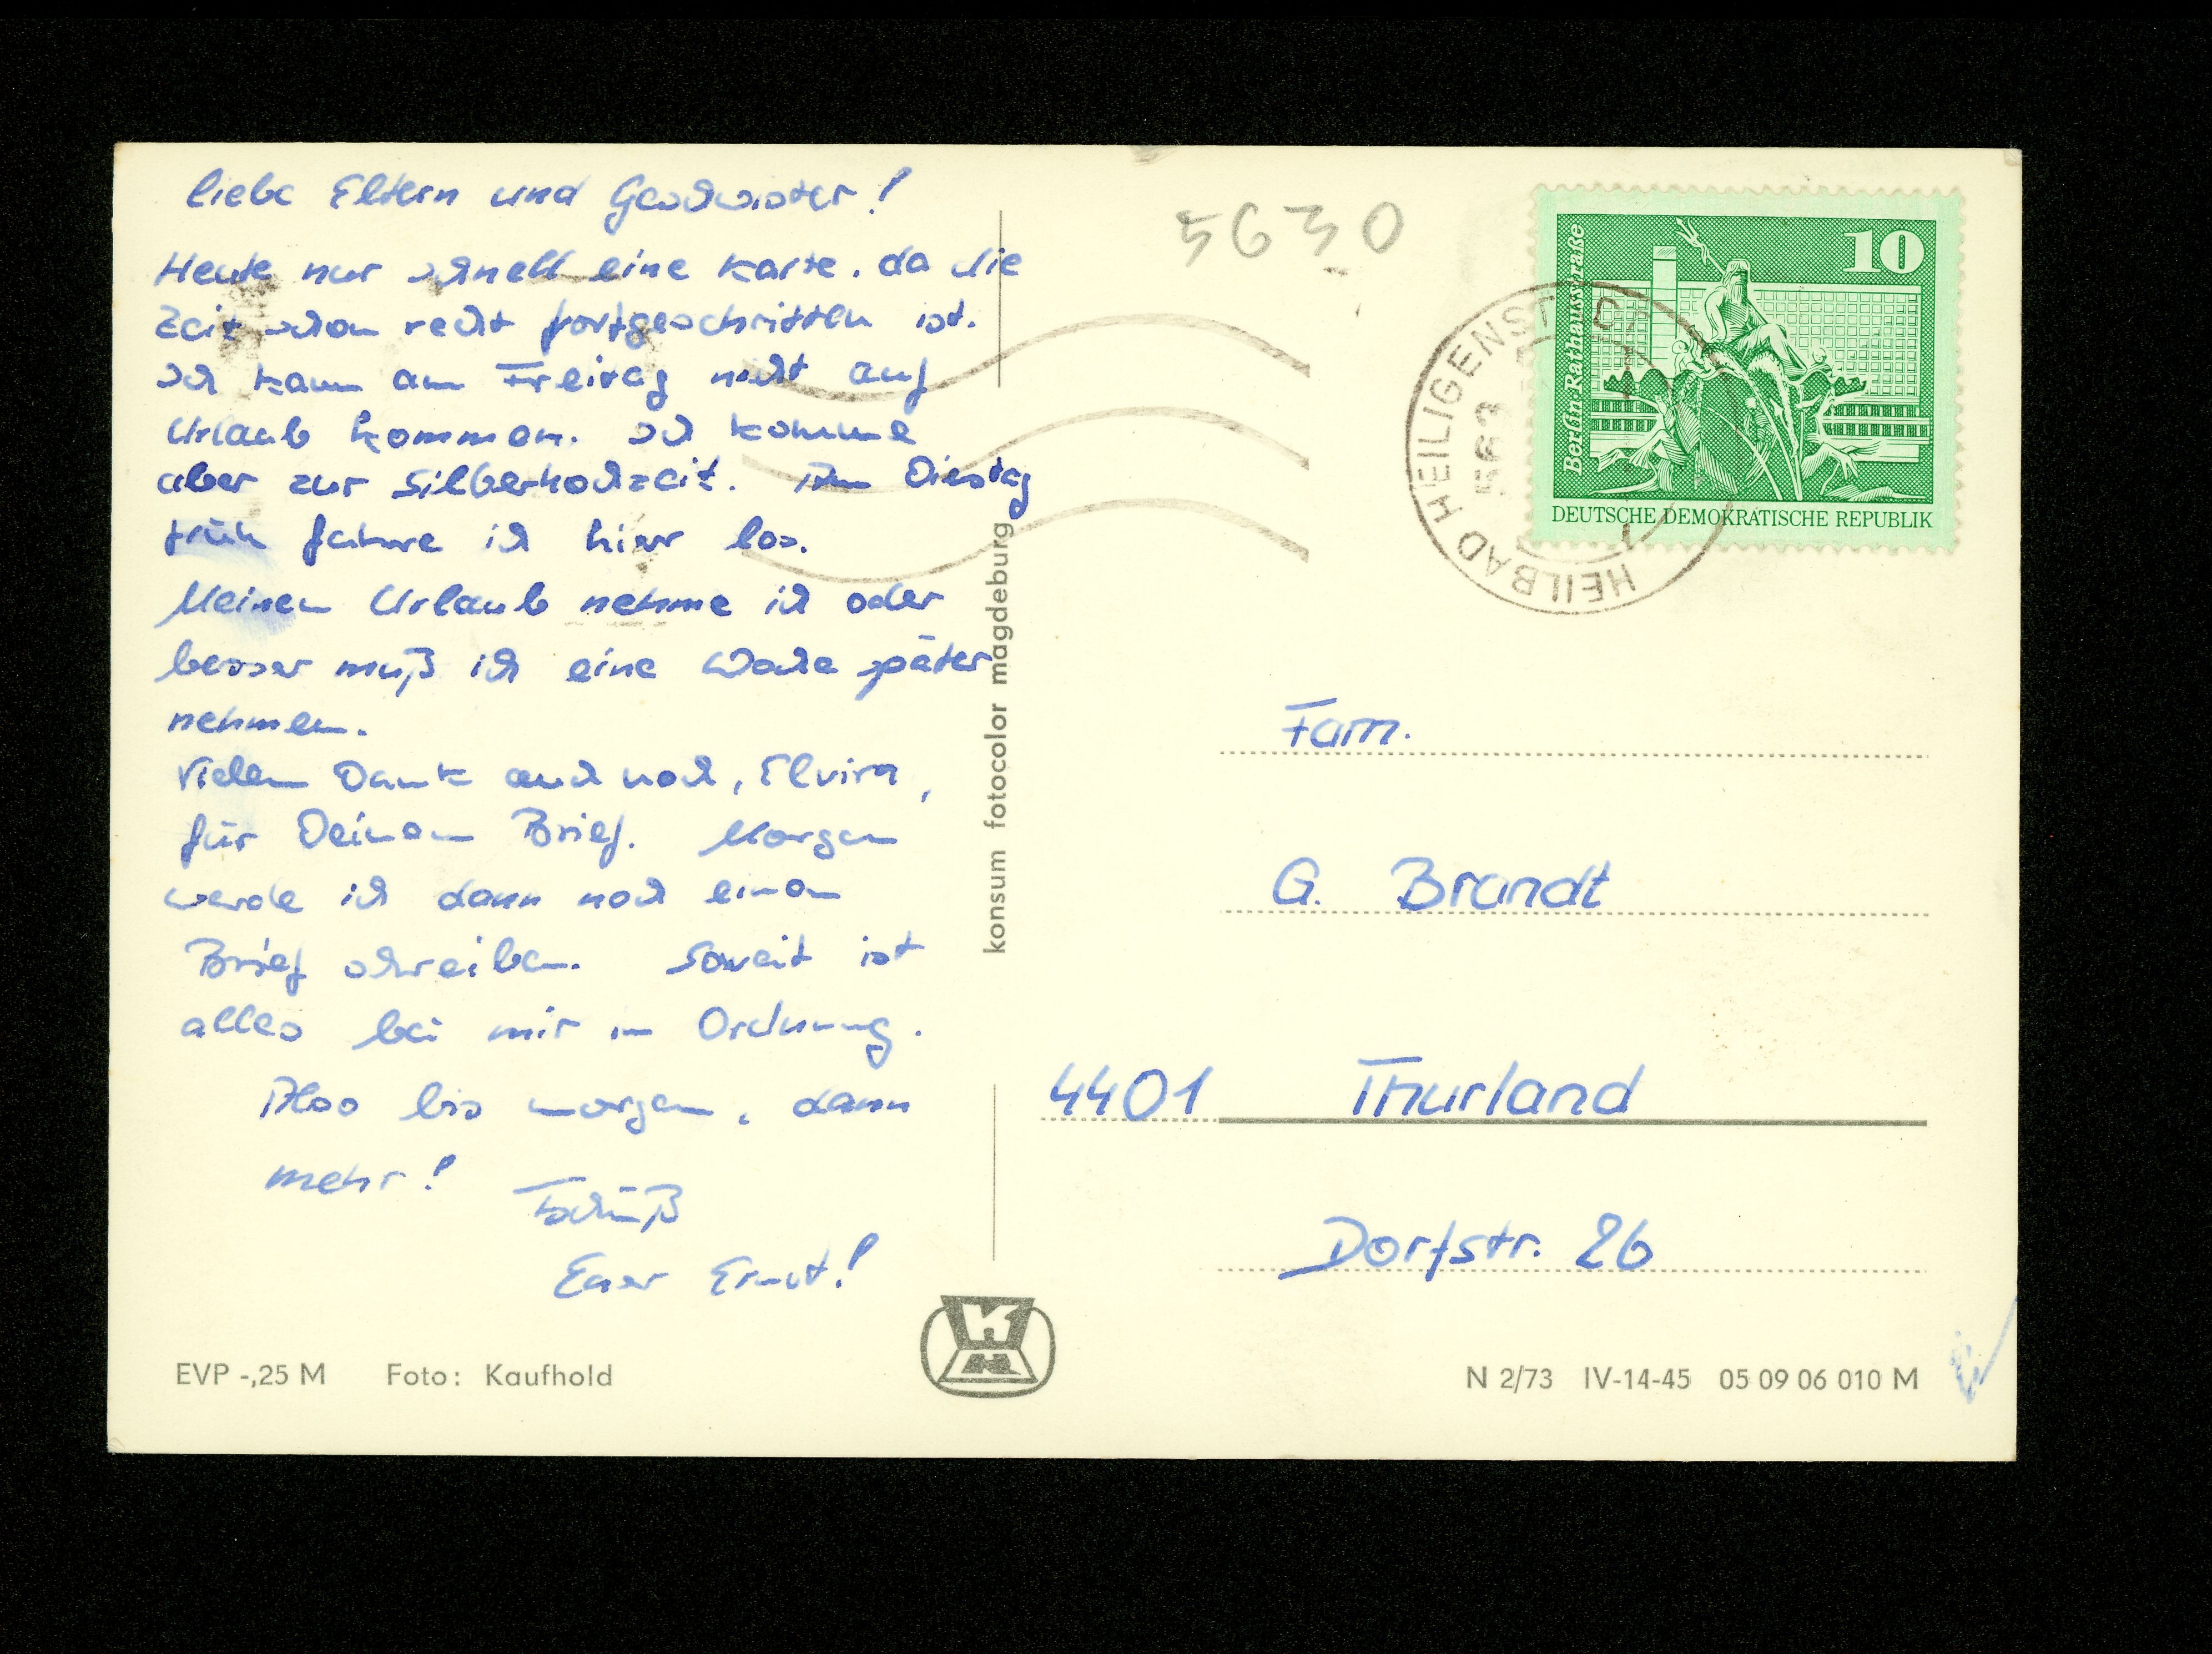 Liebe Eltern und Geschwister!
Heute nur schnell eine Karte, da die
Zeit schon recht fortgeschritten ist.
Ich kann am Freitag nicht auf
Urlaub kommen. Ich komme
aber zur Silberhochzeit. Am Dienstag
früh fahre ich hier los.
Meinen Urlaub nehme ich oder
besser muß ich eine Woche später
nehmen.
Vielen Dank auch noch, Elvira,
für Deinen Brief. Morgen
werde ich dann noch einen
Brief schreiben. Soweit ist
alles bei mir in Ordnung.
Also bis morgen, dann
mehr!
Tschüß
Euer Ernst!
EVP -,25 M Foto: Kaufhold
konsum fotocolor magdeburg
5630
10
Berlin·Rathausstraße
DEUTSCHE DEMOKRATISCHE REPUBLIK
HEILBAD HEILIGENSTADT
563
1
Fam.
G. Brandt
4401 Thurland
Dorfstr. 26
N 2/73 IV-14-45 05 09 06 010 M